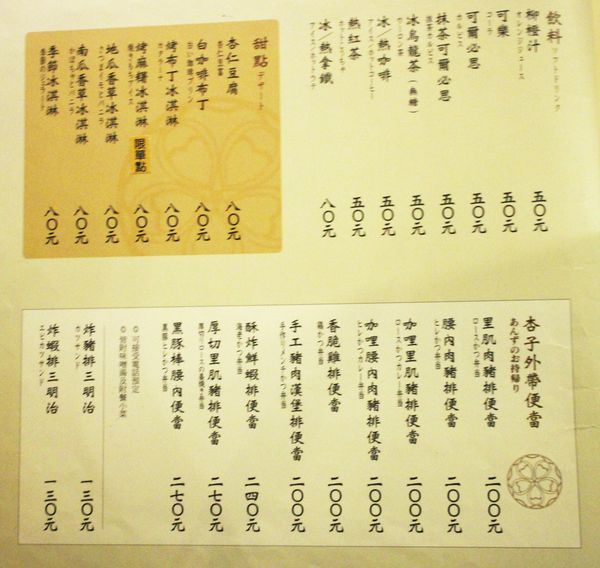 飲料 ソフトドリンク
柳橙汁 五〇元
オレンジジュース
可樂 五〇元
コーラ
可爾必思 五〇元
カルピス
抹茶可爾必思 五〇元
抹茶カルピス
冰烏龍茶(無糖) 五〇元
ウーロン茶
冰/熱咖啡 五〇元
アイス/ホットコーヒー
熱紅茶 五〇元
ホットティー
冰/熱拿鐵 八〇元
アイス/ホットラテ
甜點 デザート
杏仁豆腐 八〇元
杏仁豆富
白咖啡布丁 八〇元
白い珈琲プリン
烤布丁冰淇淋 八〇元
カタラーナ
烤麻糬冰淇淋 限單點 八〇元
焼きもちアイス
地瓜香草冰淇淋 八〇元
さつまイモとバニラ
南瓜香草冰淇淋 八〇元
かぼちゃとバニラ
季節冰淇淋 八〇元
季節のジェラート
杏子外帶便當
あんずのお持帰り
里肌肉豬排便當 二〇〇元
ロースかつ弁当
腰內肉豬排便當 二〇〇元
ヒレかつ弁当
咖哩里肌豬排便當 二〇〇元
ロースかつカレー弁当
咖哩腰內肉豬排便當 二〇〇元
ヒレかつカレー弁当
香脆雞排便當 二〇〇元
鶏かつ弁当
手工豬肉漢堡排便當 二〇〇元
手作りメンチかつ弁当
酥炸鮮蝦排便當 二四〇元
海老かつ弁当
厚切里肌豬排便當 二七〇元
厚切りロースの味噌き弁当
黑豚棒腰內便當 二七〇元
黒豚ヒレかつ弁当
◎可接受電話預定
◎皆附味噌湯及附餐小菜
炸豬排三明治 一三〇元
カツサンド
炸蝦排三明治 一三〇元
エビカツサンド